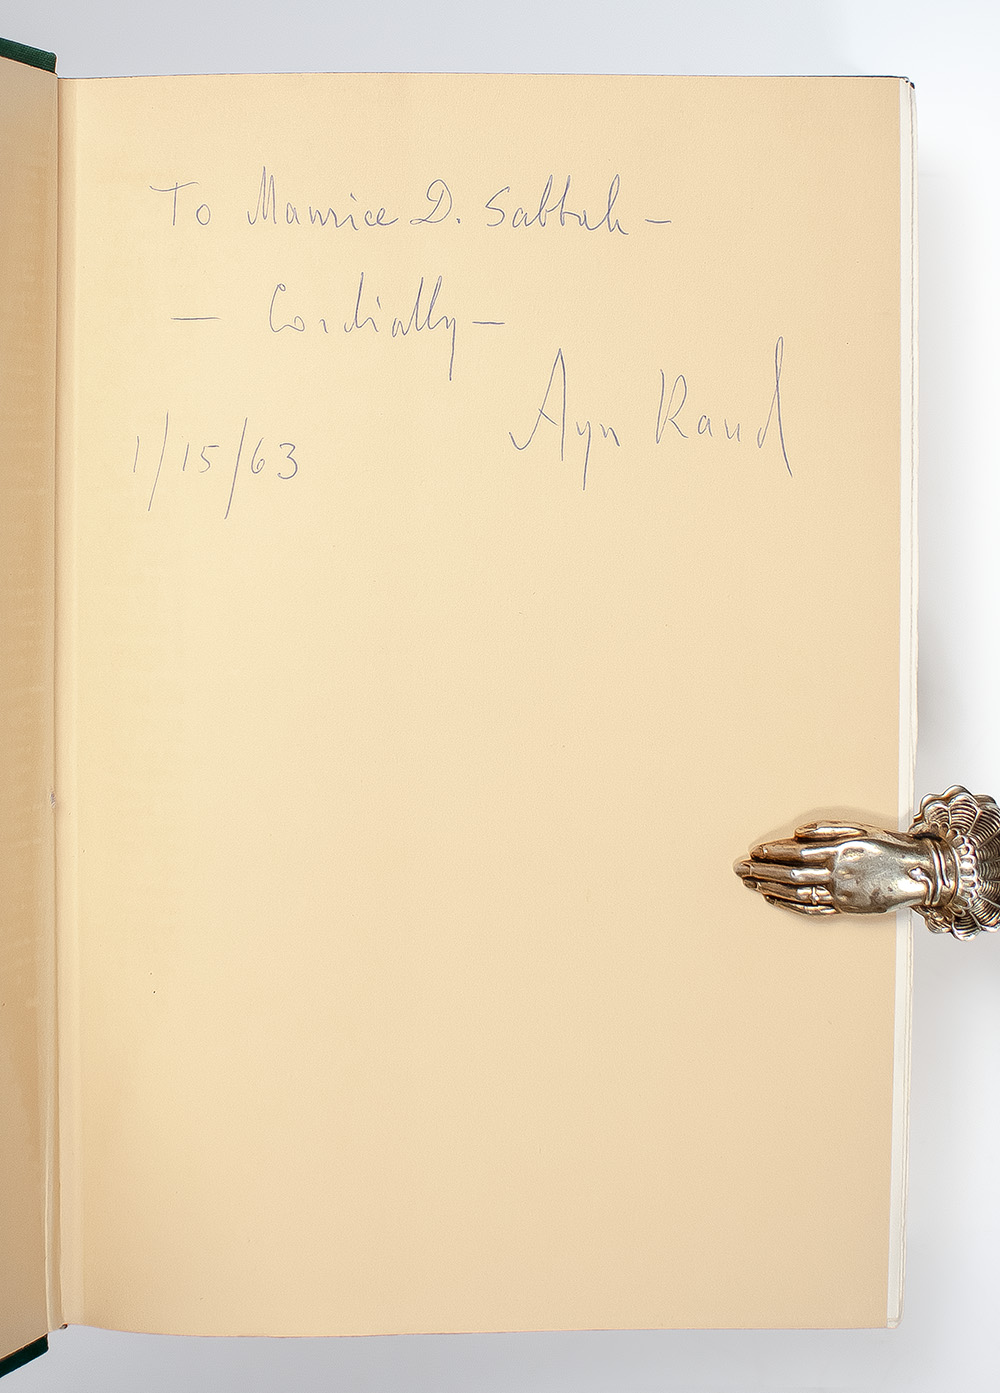 To Maurice D. Sabbah —
— Cordially —
Ayn Rand
1/15/63